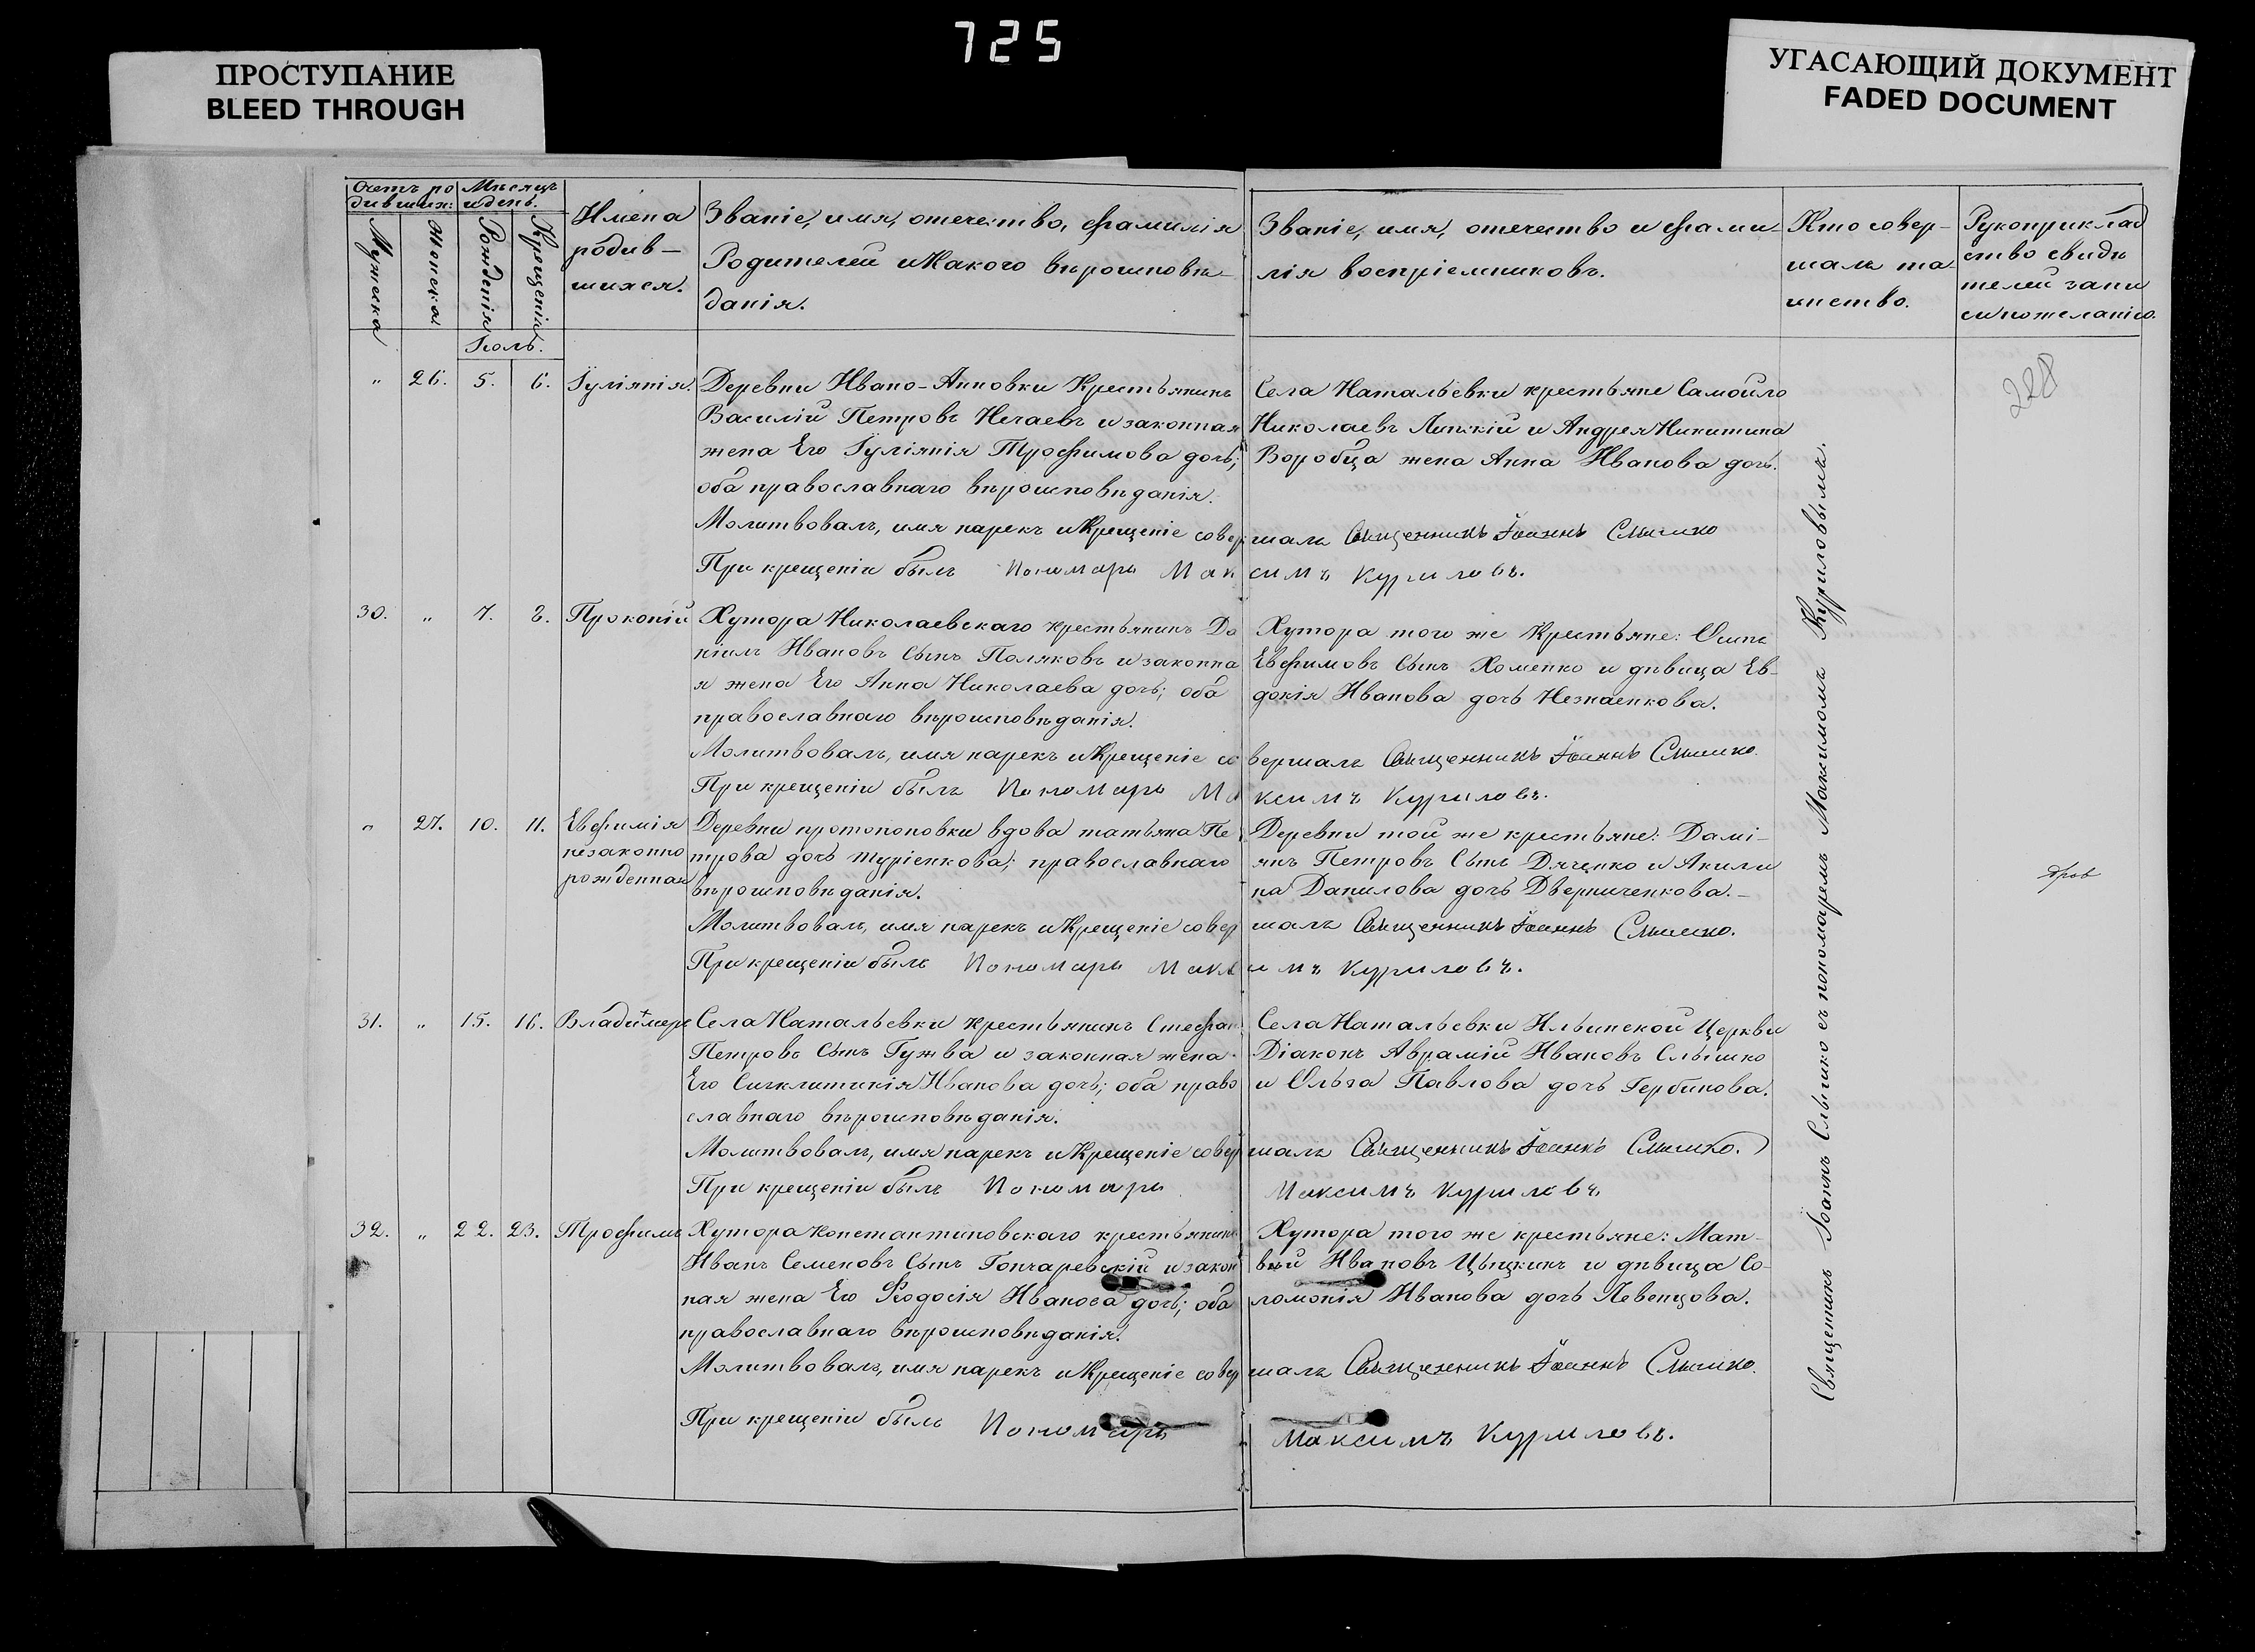 725
ПРОСТУПАНИЕ
BLEED THROUGH
УГАСАЮЩИЙ ДОКУМЕНТ
FADED DOCUMENT
Счетъ ро
дивших:
Мужска
Женска
Мѣсяцъ
и день.
Рожденія
Крещенія
Имена
родив-
шихся.
Званіе, имя, отечество, фамилія
Родителей и Какого вѣроисповѣ-
данія.
Званіе, имя, отечество и фами-
лія воспріемниковъ.
Кто совер-
шалъ та-
инство.
Рукоприклад
ство свидѣ
телей запи
си по желанію.
Іюль.
228
" 26. 5. 6. Іуліянія.
Деревни Ивано-Анновки Крестьянинъ
Василій Петровъ Нечаевъ и законная
жена Его Іуліянія Трофимова дочь;
оба православнаго вѣроисповѣданія.
Молитвовалъ, имя нарекъ и Крещеніе совершалъ Священникъ Іоаннъ Слышко
При крещеніи былъ Пономарь Максимъ Куриловъ.
Села Натальевки крестьяне Самойло
Николаевъ Липскій и Андрея Никитина
Воробца жена Анна Иванова дочь.
30. " 7. 8. Прокопій
Хутора Николаевскаго крестьянинъ Да
ніилъ Ивановъ Сынъ Поляковъ и законна
я жена Его Анна Николаева дочь; оба
православнаго вѣроисповѣданія.
Молитвовалъ, имя нарекъ и Крещеніе совершалъ Священникъ Іоаннъ Слышко.
При крещеніи былъ Пономарь Максимъ Куриловъ.
Хутора того же Крестьяне: Осипъ
Евфимовъ Сынъ Хоменко и дѣвица Ев-
докія Иванова дочь Незнаенкова.
" 27. 10. 11. Евфимія
незаконно
рожденная
Деревни протопоповки вдова татьяна Пе
трова дочь туріенкова; православнаго
вѣроисповѣданія.
Молитвовалъ, имя нарекъ и Крещеніе совершалъ Священникъ Іоаннъ Слышко.
При крещеніи былъ Пономарь Максимъ Куриловъ.
Деревни той же крестьяне: Дамі-
янъ Петровъ Сынъ Дяченко и Акили
на Данилова дочь Дверниченкова.-
31. " 15. 16. Владимеръ
Села Натальевки крестьянинъ Стефан
Петровъ Сынъ Гужва и законная жена
Его Сигклитикія Иванова дочь; оба право
славнаго вѣроисповѣданія.
Молитвовалъ, имя нарекъ и Крещеніе совершалъ Священникъ Іоаннъ Слышко.
При крещеніи былъ Пономарь Максимъ Куриловъ.
Села Натальевки Ильинской Церкви
Діаконъ Аврамій Ивановъ Слышко
и Ольга Павлова дочь Гербикова.
32. " 22. 23. Трофимъ
Хутора Константиновскаго крестьянинъ
Иванъ Семеновъ Сынъ Гончаревскій и закон
ная жена Его Ѳеодосія Иванова дочь; оба
православнаго вѣроисповѣданія.
Молитвовалъ, имя нарекъ и Крещеніе совершалъ Священникъ Іоаннъ Слышко.
При крещеніи былъ Пономарь Максимъ Куриловъ.
Хутора того же крестьяне: Мат-
вѣй Ивановъ Цыцкинъ и дѣвица Со-
ломонія Иванова дочь Левенцова.
Священникъ Іоаннъ Слышко съ пономаремъ Максимомъ Куриловымъ.